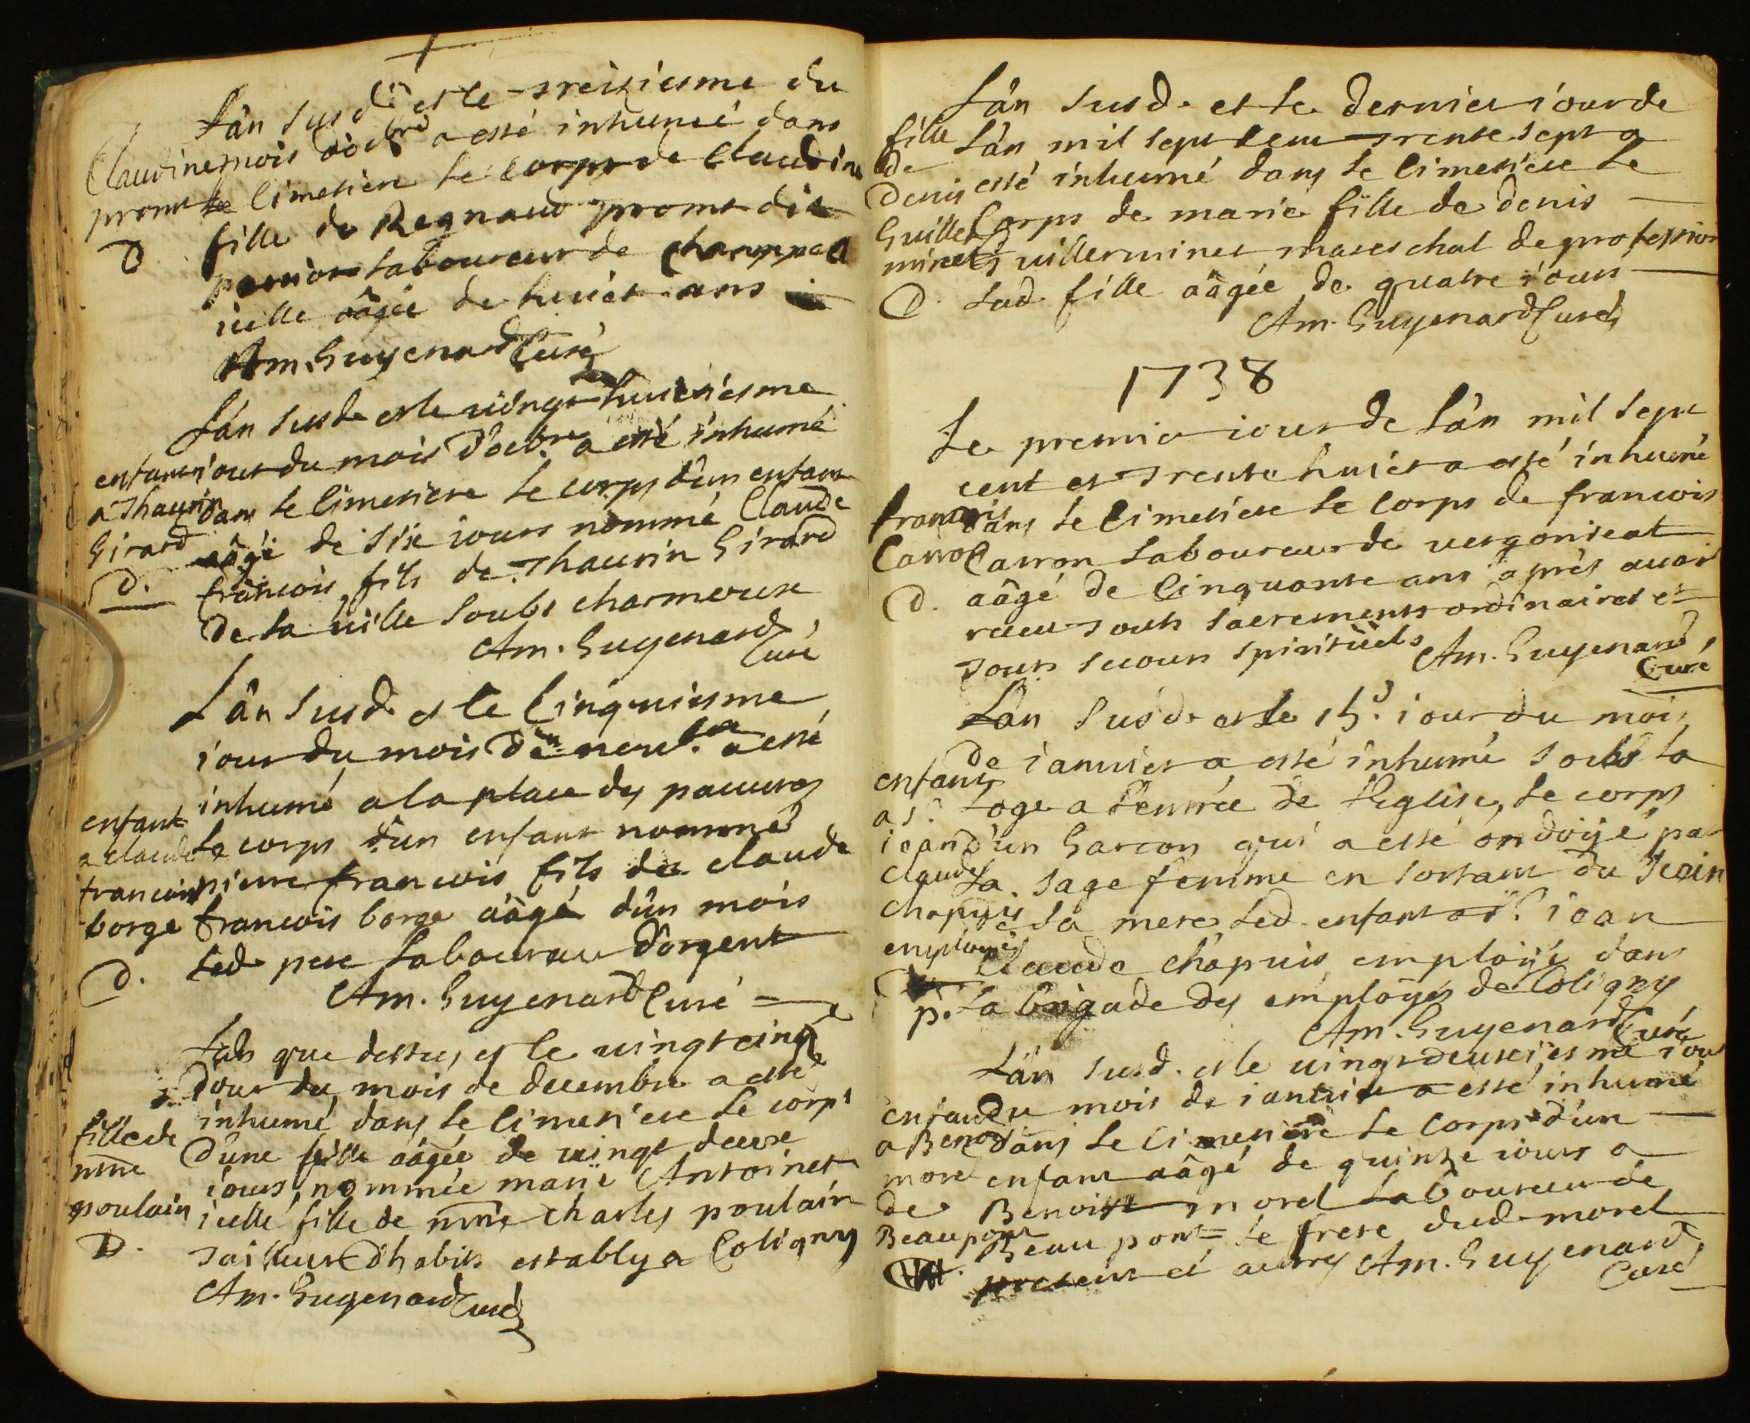 Lán susd. et le treiziesme du
Claudine mois doctbre a esté inhumeé dans
promt le Cimetiere le corps de Claudine
D fille de Regnaud promt dit
laboureur de champel
icelle aâgée de huict ans
Am. Guyenard Curé
Lán susd. et le vingt huictiesme
enfant iour du mois d'octbre a esté inhumé
a Thaurin dans le Cimetiere le corps d'un enfant
Girard aâgé de six iours nommé Claude
D. francois, fils de Thaurin Girard
de la ville soubs charmoux
Am. Guyenard
Curé
L'ân susd. et le Cinquiesme
iour du mois de novbre a esté
inhumé a la place des pauvres
enfant le corps d'un enfant nommé
a claude pierre francois fils de claude
francois borge francois borge aâgé d'un mois
D. led. pere laboureur d'orgent
Am. Guyenard Curé
Lán que dessus et le vingt cinq
iour du mois de decembre a esté
inhumé dans le Cimetiere le corps
fille de d'une fille aâgée de vingt deux
mre iours, nommée marie Antoinet
poulain icelle fille de mre charles poulain
D. tailleur d'habits estably a Coligny
Am. Guyenard Curé
Lán susd. et le dernier iour de
fille Lán mil sept cent trente sept a
de
Denis esté inhumé dans le Cimetiere le
Guiller Corps de marie fille de denis
minet Guillerminet mareschal de profession
D. lad. fille aâgée de quatre iours
Am. Guyenard Curé
1738
Le premier iour de Lán mil sept
cent et trente huict a esté inhumé
francois dans le Cimetiere le Corps de francois
Carron Carron laboureur de vergonseat
D. aâgé de Cinquante ans après avoir
receu tous sacrements ordinaires et
tous secours spirituels Am. Guyenard
Curé
Lán susd. et le 15e. iour du mois
de ianvier a esté inhumé soubs la
enfant loge a l'entrée de l'Eglise, le corps
a Sr.
ioan d'un Garcon qui a esté ondoyé par
claude la sage femme en sortant du sein
chapuis de la mere led. enfant a Sr. ioan
employé Claude chapuis employé dans
p. la brigade des employés de Coligny
Am. Guyenard Curé
Lán susd. et le vingt deuxiesme iour
enfant du mois de ianvier a esté inhumé
a Benoit dans le Cimetiere le Corps d'un
morel enfant aâgé de quinze iours a
de Benoist morel laboureur de
Beaupont Beaupont le frere dud. morel
present et autres Am. Guyenard
Curé